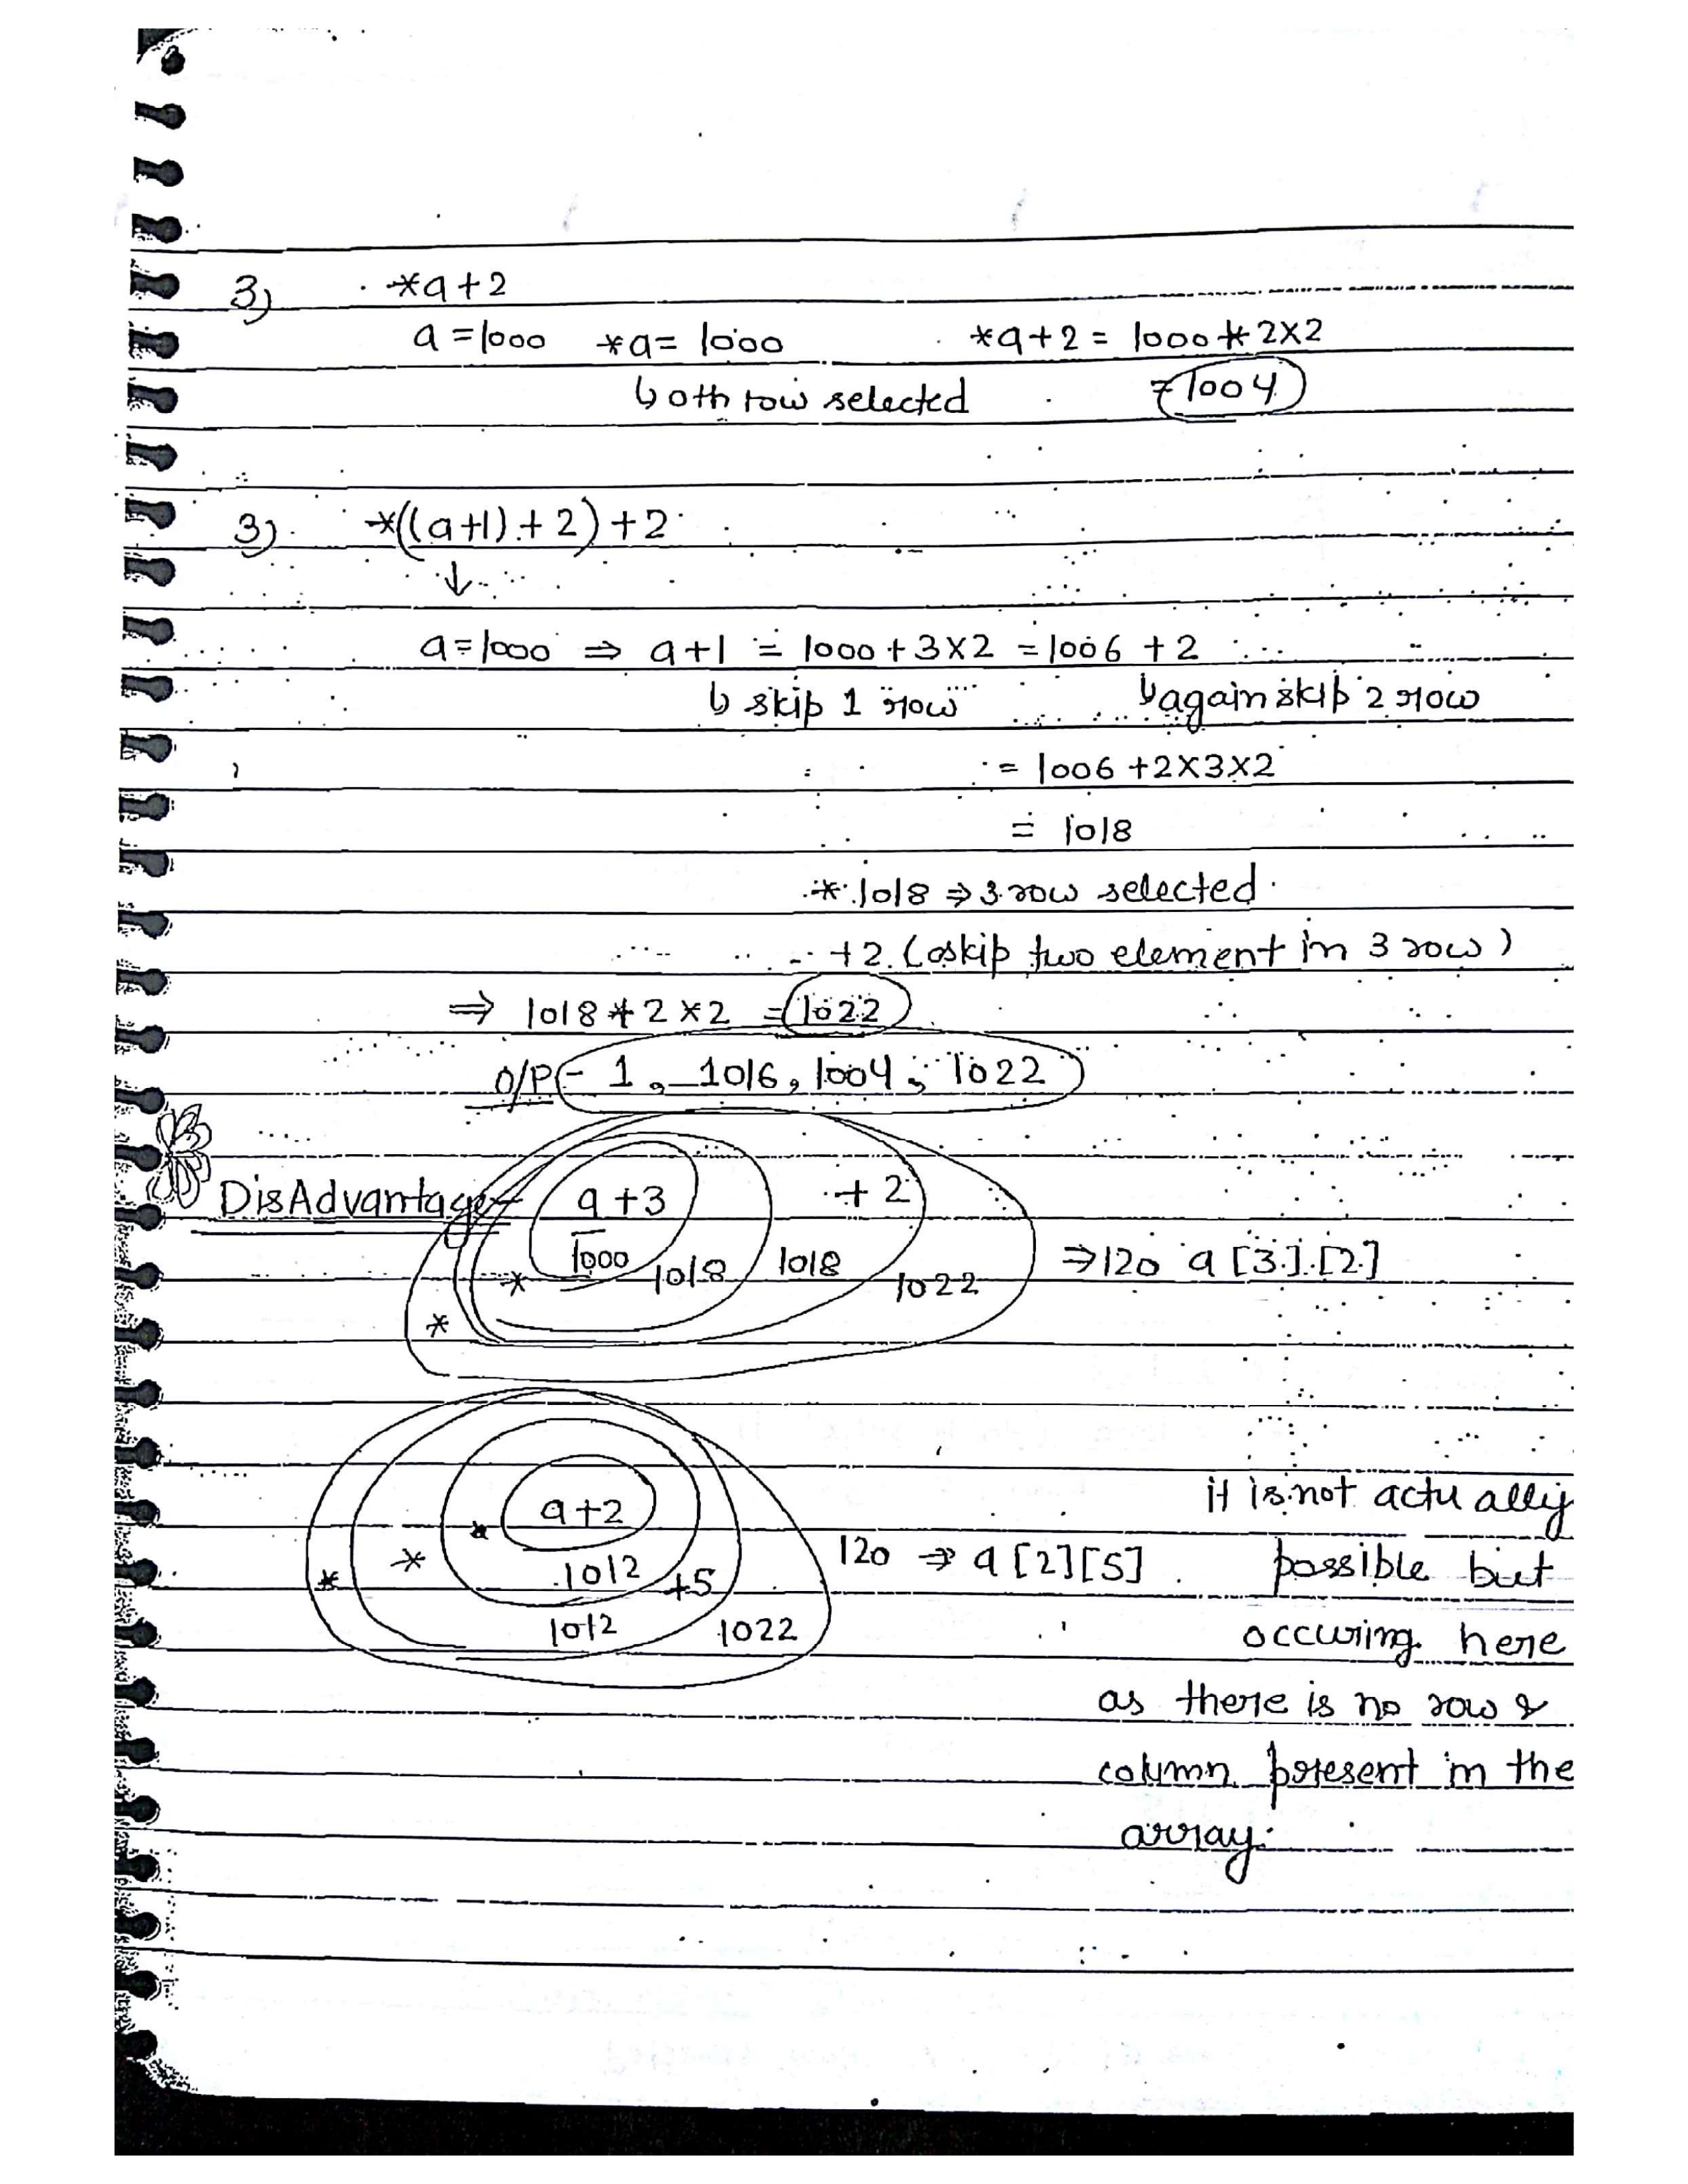 3) *a+2
a=1000 *a= 1000 *a+2 = 1000+2X2
↳ oth row selected =1004
3) *((a+1)+2)+2
↓
a=1000 ⇒ a+1 = 1000+3X2 =1006 +2
↳ skip 1 row ↳again skip 2 row
= 1006 +2X3X2
= 1018
* 1018 ⇒ 3 row selected
+2 (skip two element in 3 row)
⇒ 1018+2*2 =1022
O/P - 1, 1016, 1004, 1022
DisAdvantage- a+3 +2
* 1000 1018 1018 1022 ⇒120 a[3][2]
*
it is not actually
* a+2
* * 1012 +5 120 ⇒ a[2][5] possible but
1012 1022 occuring here
as there is no row &
column present in the
array.